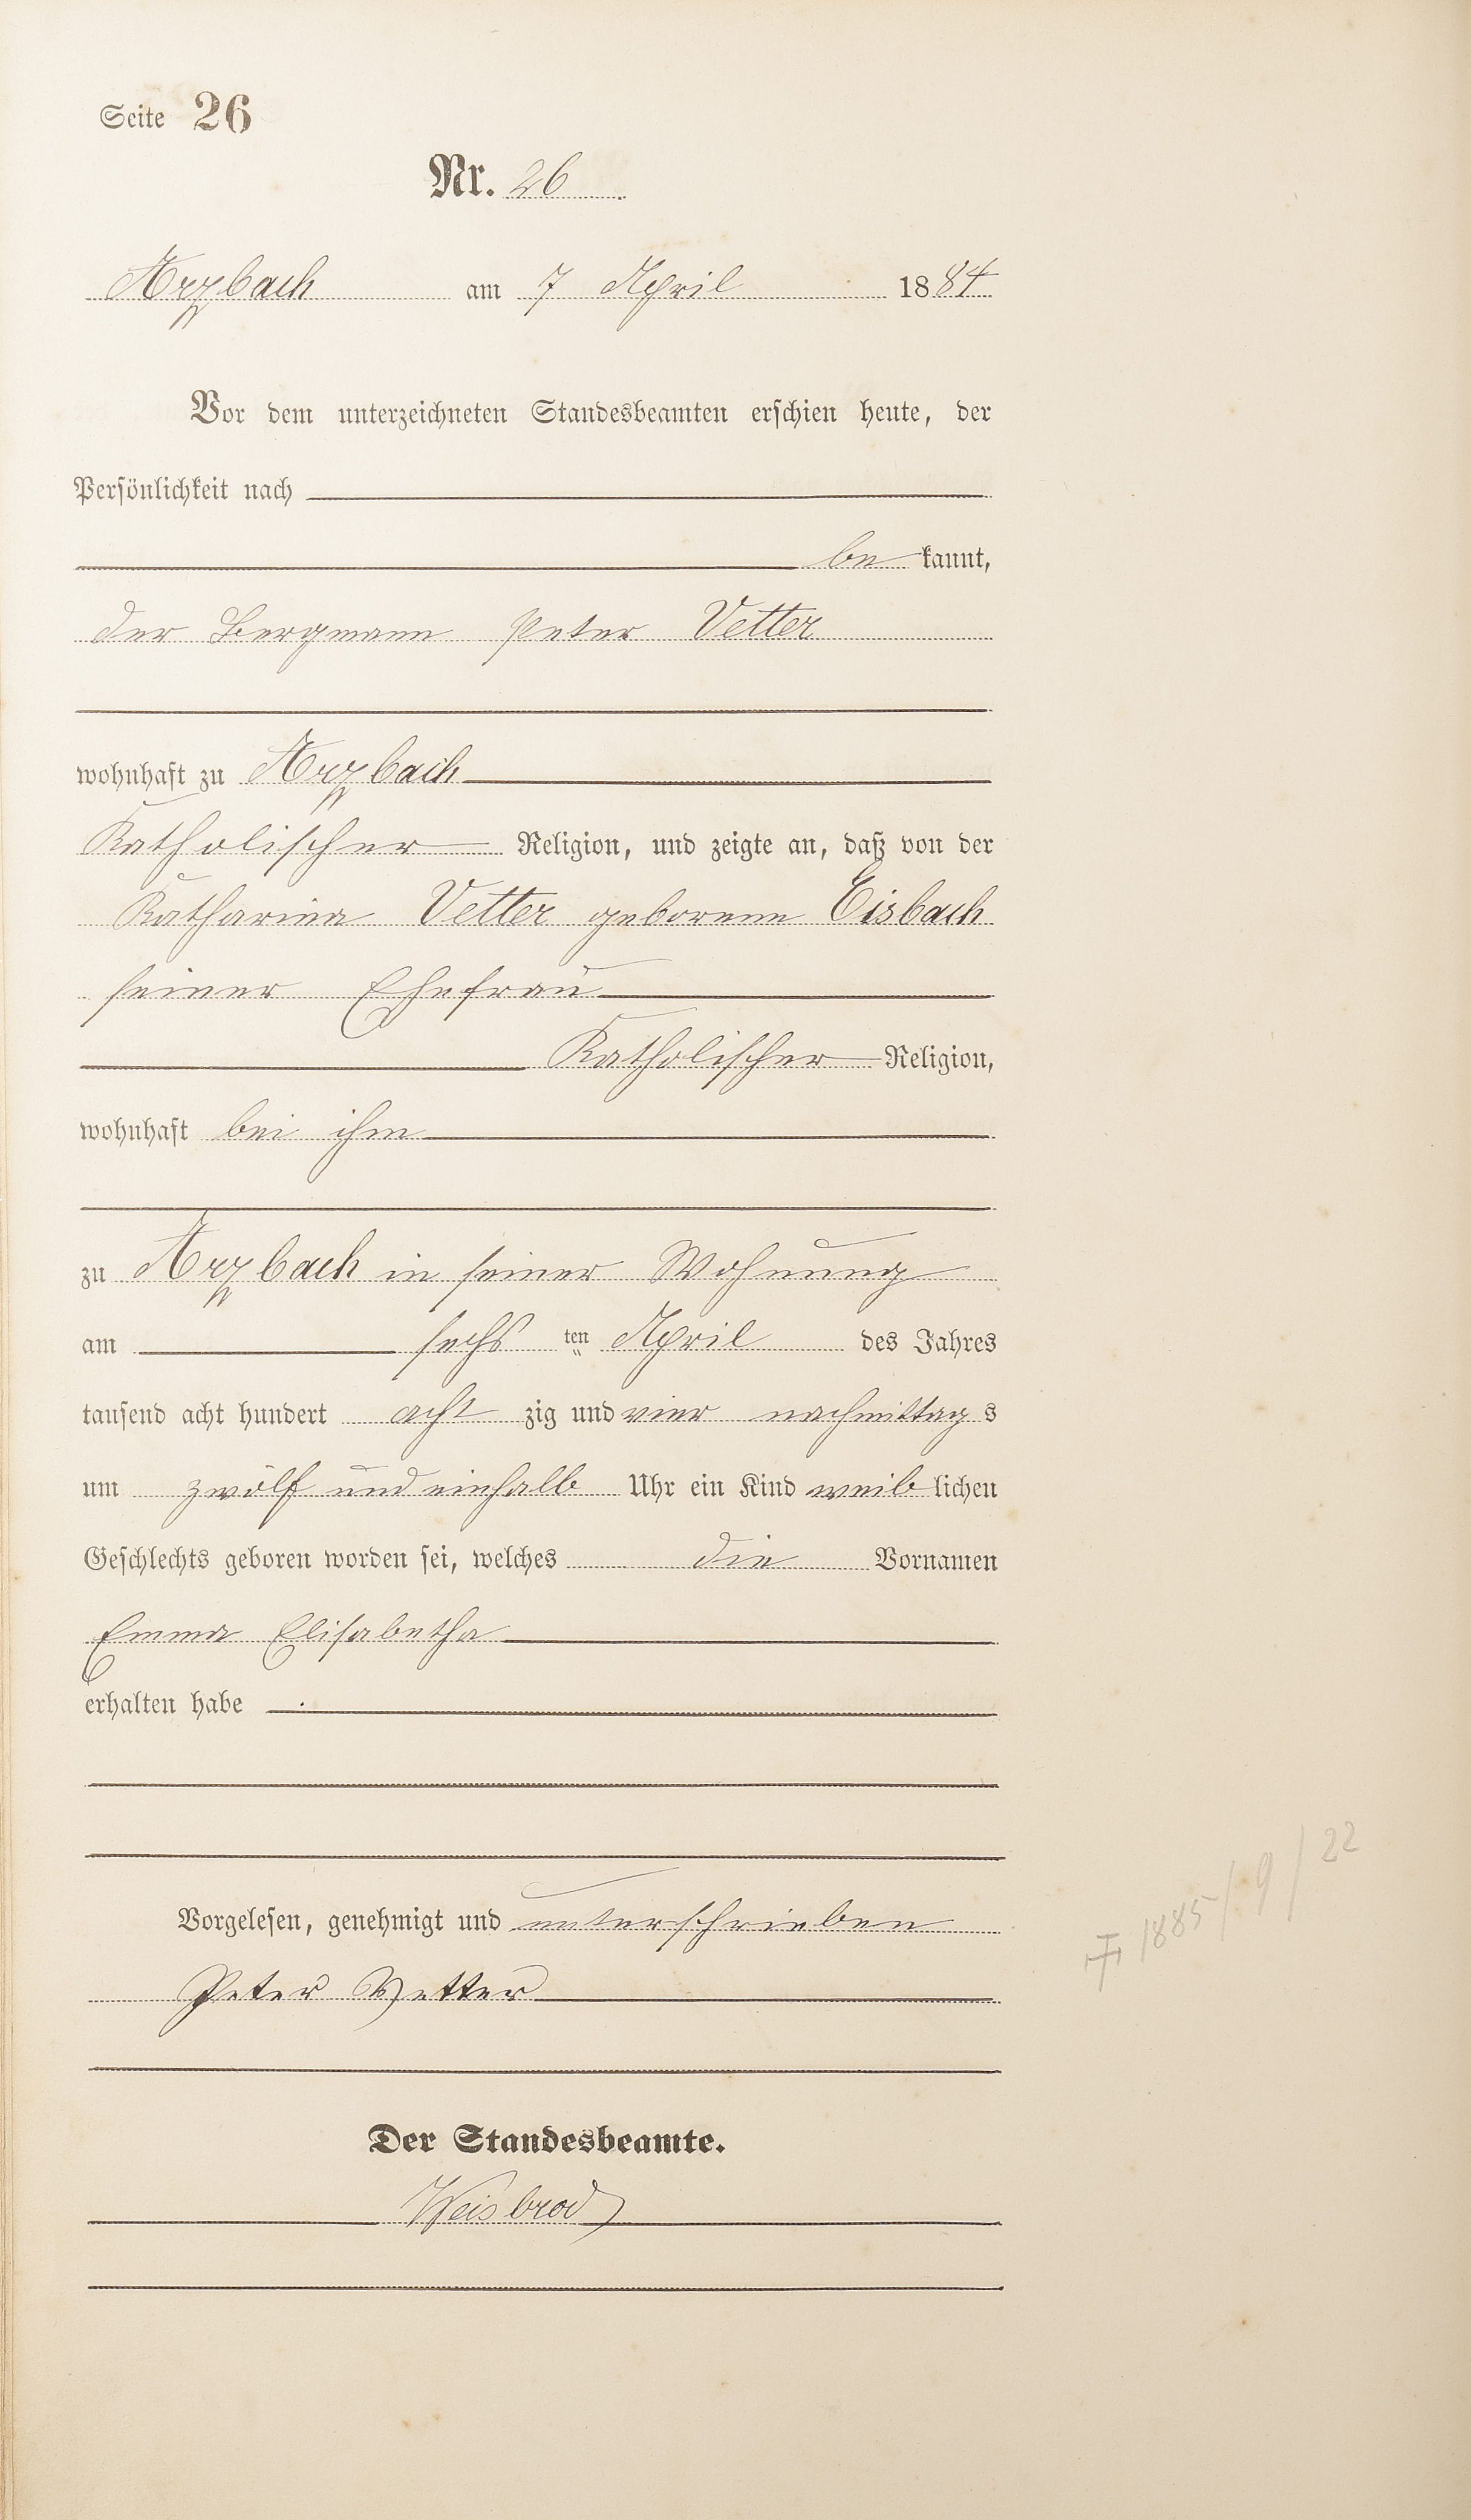 Seite 26
Nr. 26
Arzbach am 7 April 1884
Vor dem unterzeichneten Standesbeamten erschien heute, der
Persönlichkeit nach
be kannt,
der Bergmann Peter Vetter
wohnhaft zu Arzbach
Katholischer Religion, und zeigte an, daß von der
Katharina Vetter geborene Eisbach
seiner Ehefrau
Katholischer Religion,
wohnhaft bei ihm
zu Arzbach in seiner Wohnung
am sechs ten April des Jahres
tausend acht hundert acht zig und vier nachmittag s
um zwölf und einhalb Uhr ein Kind weib lichen
Geschlechts geboren worden sei, welches die Vornamen
Emma Elisabetha
erhalten habe
Vorgelesen, genehmigt und unterschrieben
Peter Vetter
Der Standesbeamte.
Weisbrod
† 1885/9/22